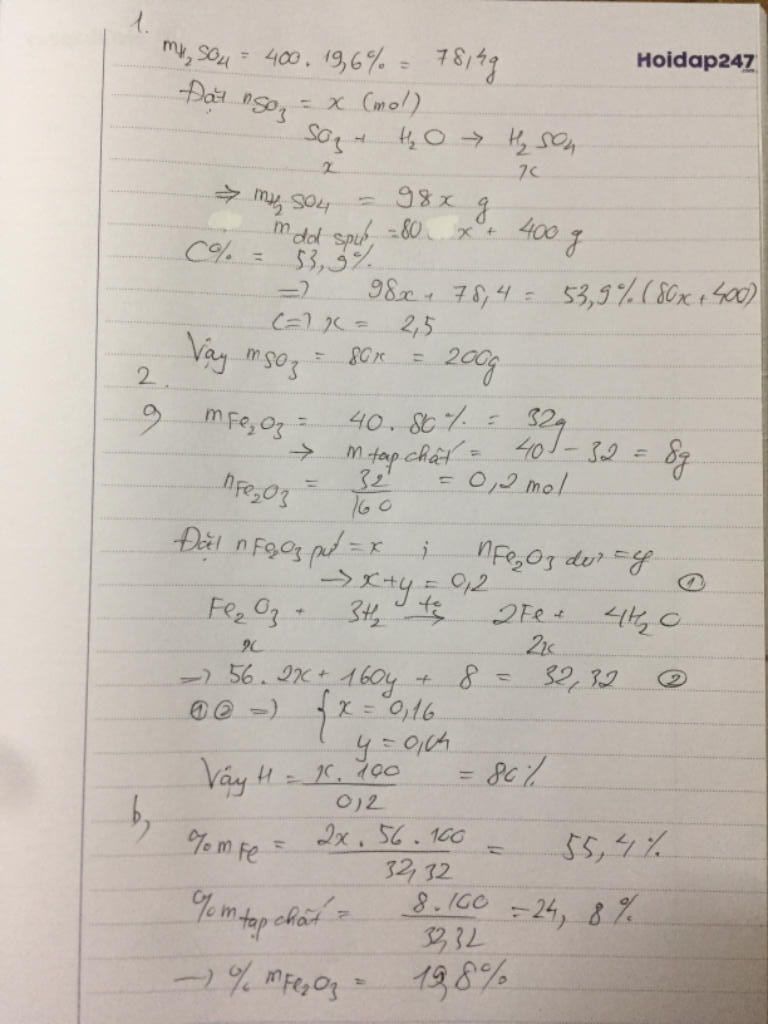 1.
mH₂SO₄ = 400 . 19,6% = 78,4g
Hoidap247.com
Đặt nSO₃ = x (mol)
SO₃ + H₂O → H₂SO₄
x x
=> mH₂SO₄ = 98x g
m dd spứ = 80 x + 400 g
C% = 53,9%
=> 98x + 78,4 = 53,9% (80x + 400)
<=> x = 2,5
Vậy mSO₃ = 80x = 200g
2.
a) mFe₂O₃ = 40 . 80% = 32g
→ m tạp chất = 40 - 32 = 8g
nFe₂O₃ = 32/160 = 0,2 mol
Đặt nFe₂O₃ pứ = x ; nFe₂O₃ dư = y
→ x + y = 0,2 ①
Fe₂O₃ + 3H₂ →(t°) 2Fe + 4H₂O
x 2x
=> 56 . 2x + 160y + 8 = 32,32 ②
① ② => { x = 0,16
y = 0,04
Vậy H = x . 100/0,2 = 80%
b, %mFe = 2x . 56 . 100/32,32 = 55,4%
%m tạp chất = 8 . 100/32,32 = 24,8%
→ %mFe₂O₃ = 19,8%